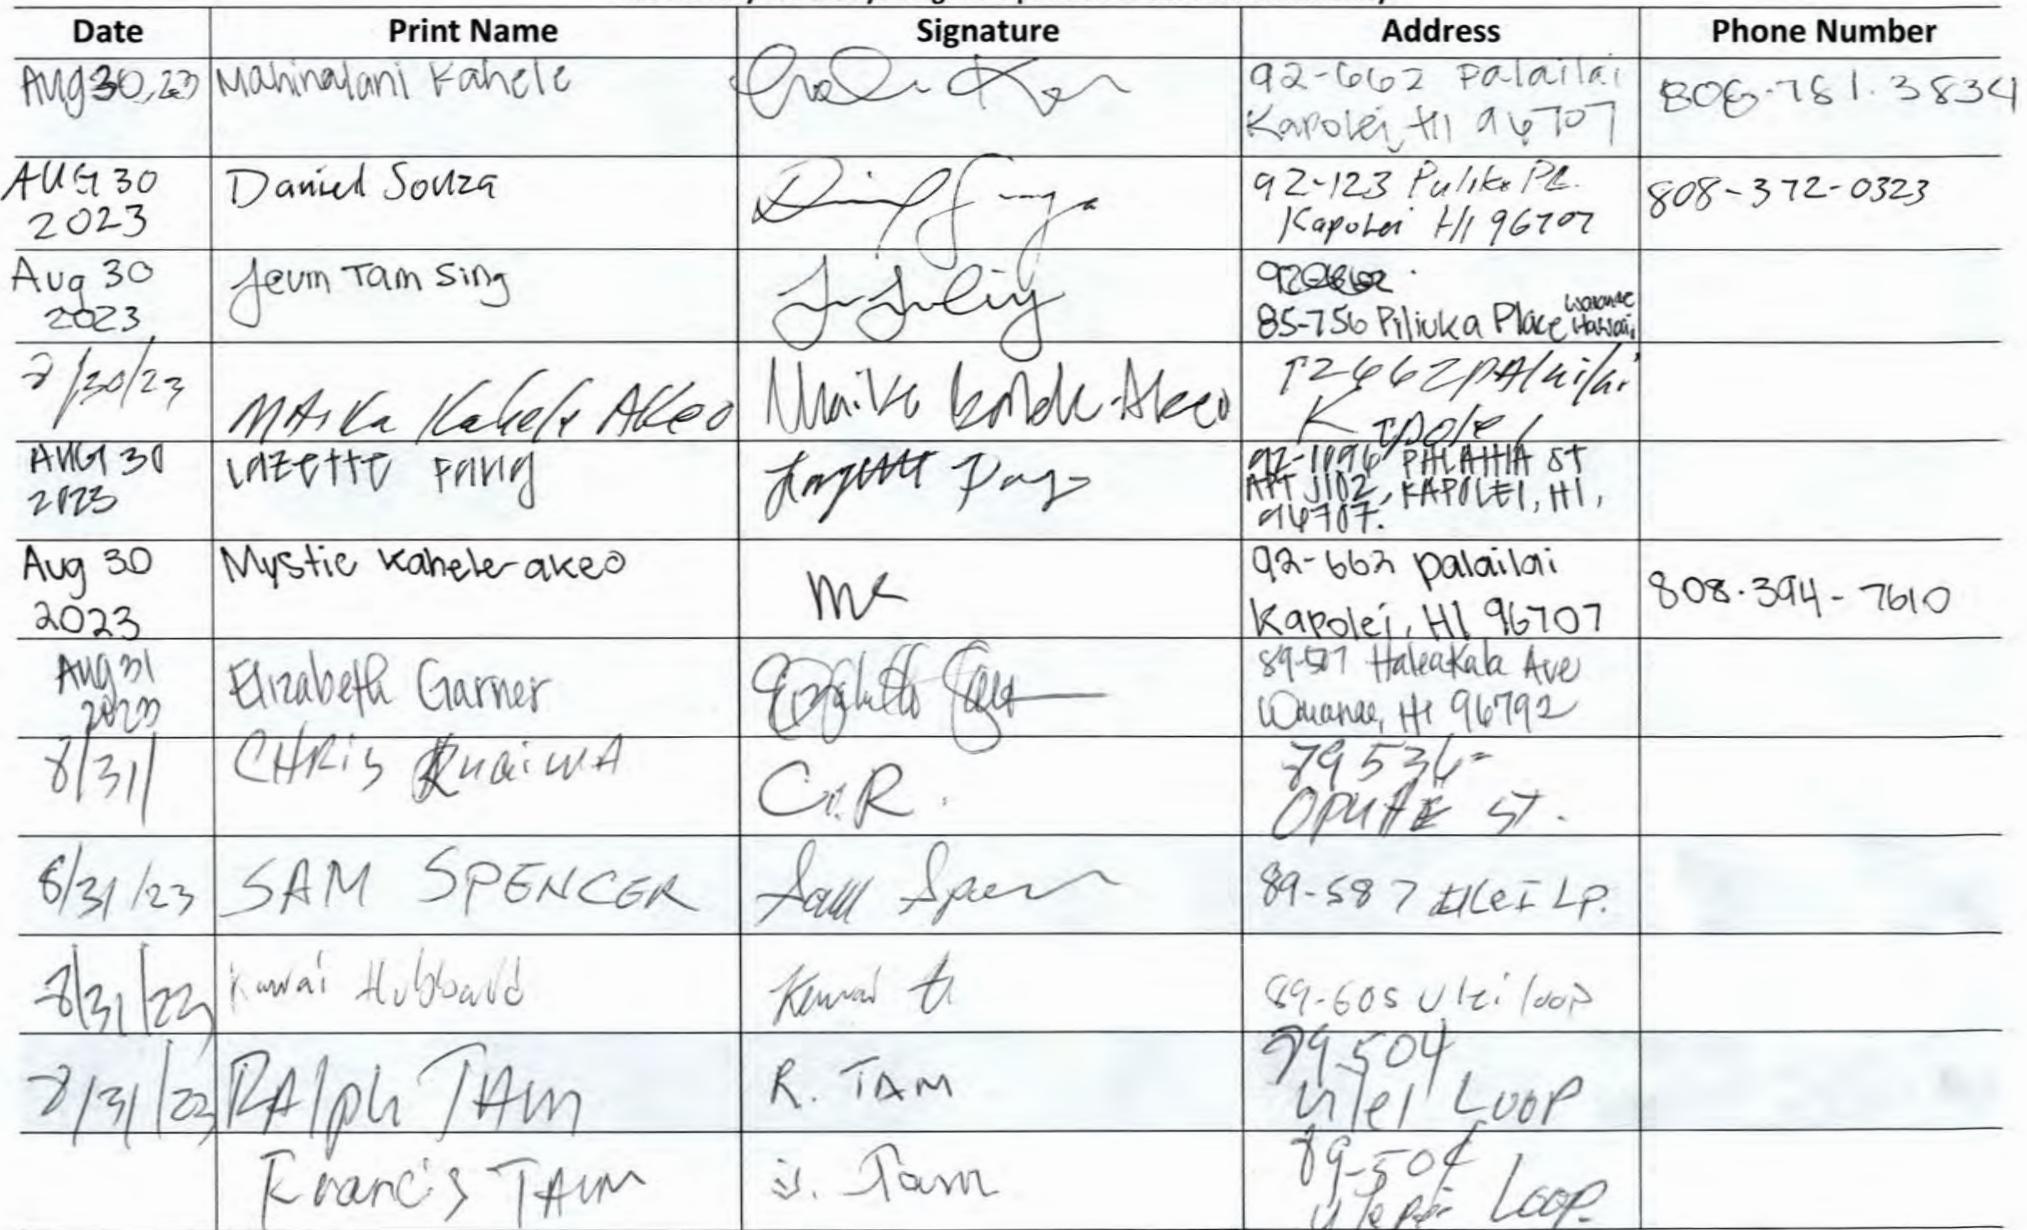 Date Print Name Signature Address Phone Number
Aug 30, 23 Mahinalani Kahele 92-662 palailai
Kapolei, HI 96707 808-781-3834
AUG 30
2023 Daniel Souza 92-123 Puliko PL.
Kapolei HI 96707 808-372-0323
Aug 30
2023 Jeum Tam Sing
85-756 Piliuka Place Waianae
Hawaii
8/30/23 MAika Kahele AKeo Maika Kahele-Akeo 92662 pAlailai
Kapolei
AUG 30
2023 LAZETTE PANG Lazette Pang 92-1096 PALAHIA ST
APT J102, KAPOLEI, HI,
96707.
Aug 30
2023 Mystic Kahele-akeo MK 92-662 palailai
Kapolei, HI 96707 808-394-7610
Aug 31
2023 Elizabeth Garner Elizabeth Garner 89-507 Haleakala Ave
Waianae, HI 96792
8/31/ CHRis C.R. OPUHE ST.
8/31/23 SAM SPENCER Sam Spencer 89-587 Lp.
8/31/23 Kawai Hubbard Kawai H 89-605 Ulei loop
8/31/23 RAlph TAm R. TAM 89-504
Ulei Loop
Francis TAm Tam 89-504
Loop